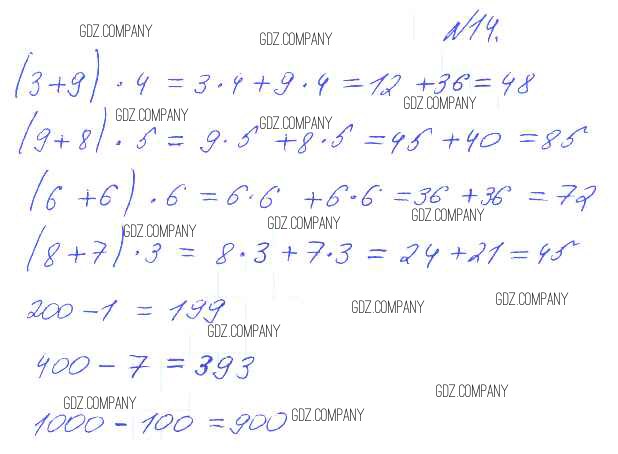 №14.
(3+9)·4 = 3·4+9·4 = 12+36 = 48
(9+8)·5 = 9·5+8·5 = 45+40 = 85
(6+6)·6 = 6·6+6·6 = 36+36 = 72
(8+7)·3 = 8·3+7·3 = 24+21 = 45
200-1 = 199
400-7 = 393
1000-100 = 900
GDZ.COMPANY
GDZ.COMPANY
GDZ.COMPANY
GDZ.COMPANY
GDZ.COMPANY
GDZ.COMPANY
GDZ.COMPANY
GDZ.COMPANY
GDZ.COMPANY
GDZ.COMPANY
GDZ.COMPANY
GDZ.COMPANY
GDZ.COMPANY
GDZ.COMPANY